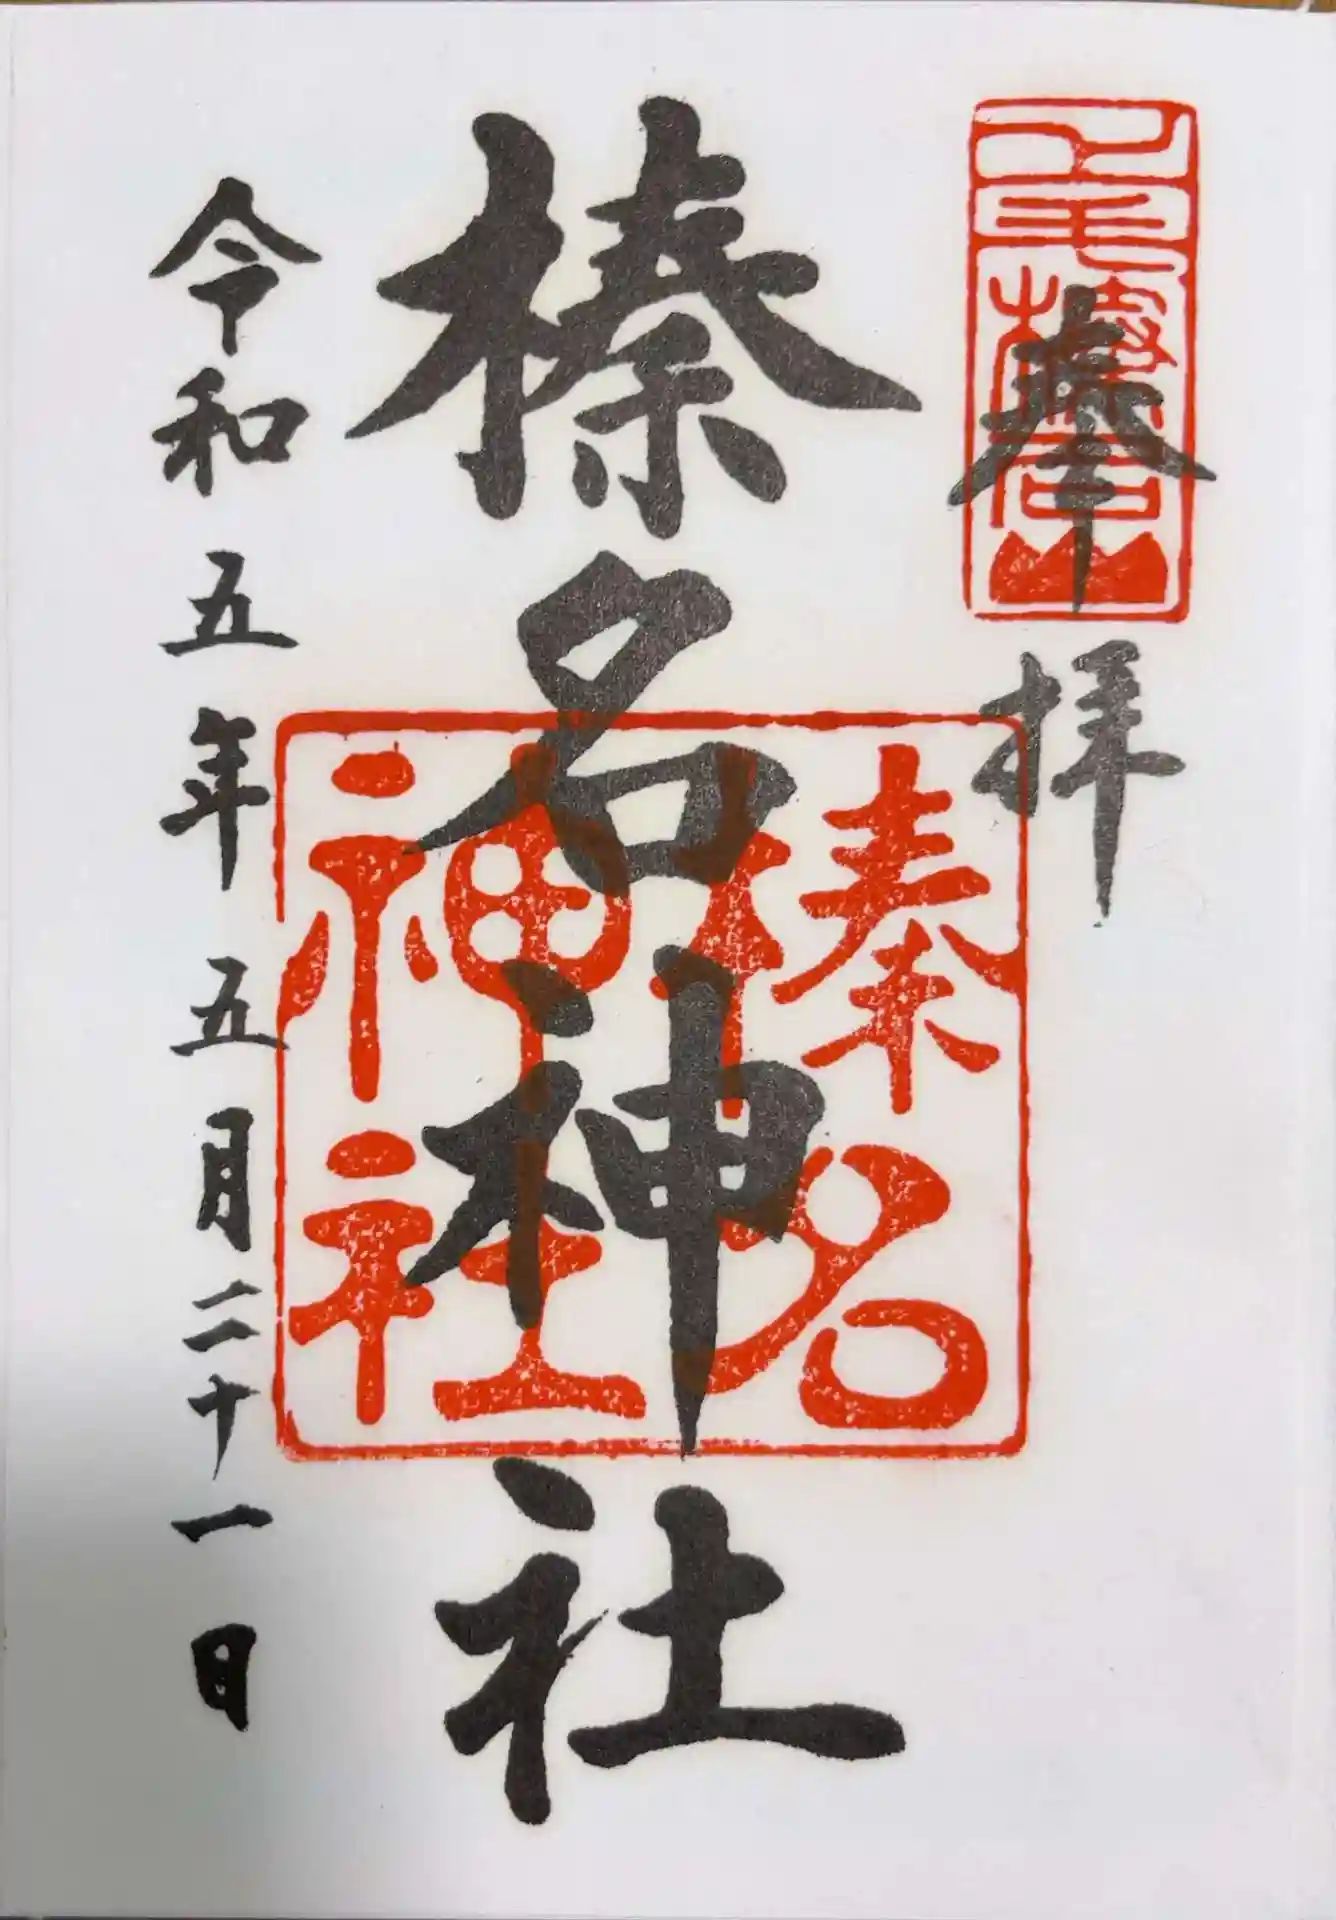 奉拝
榛名神社
榛名
神社
令和五年五月二十一日